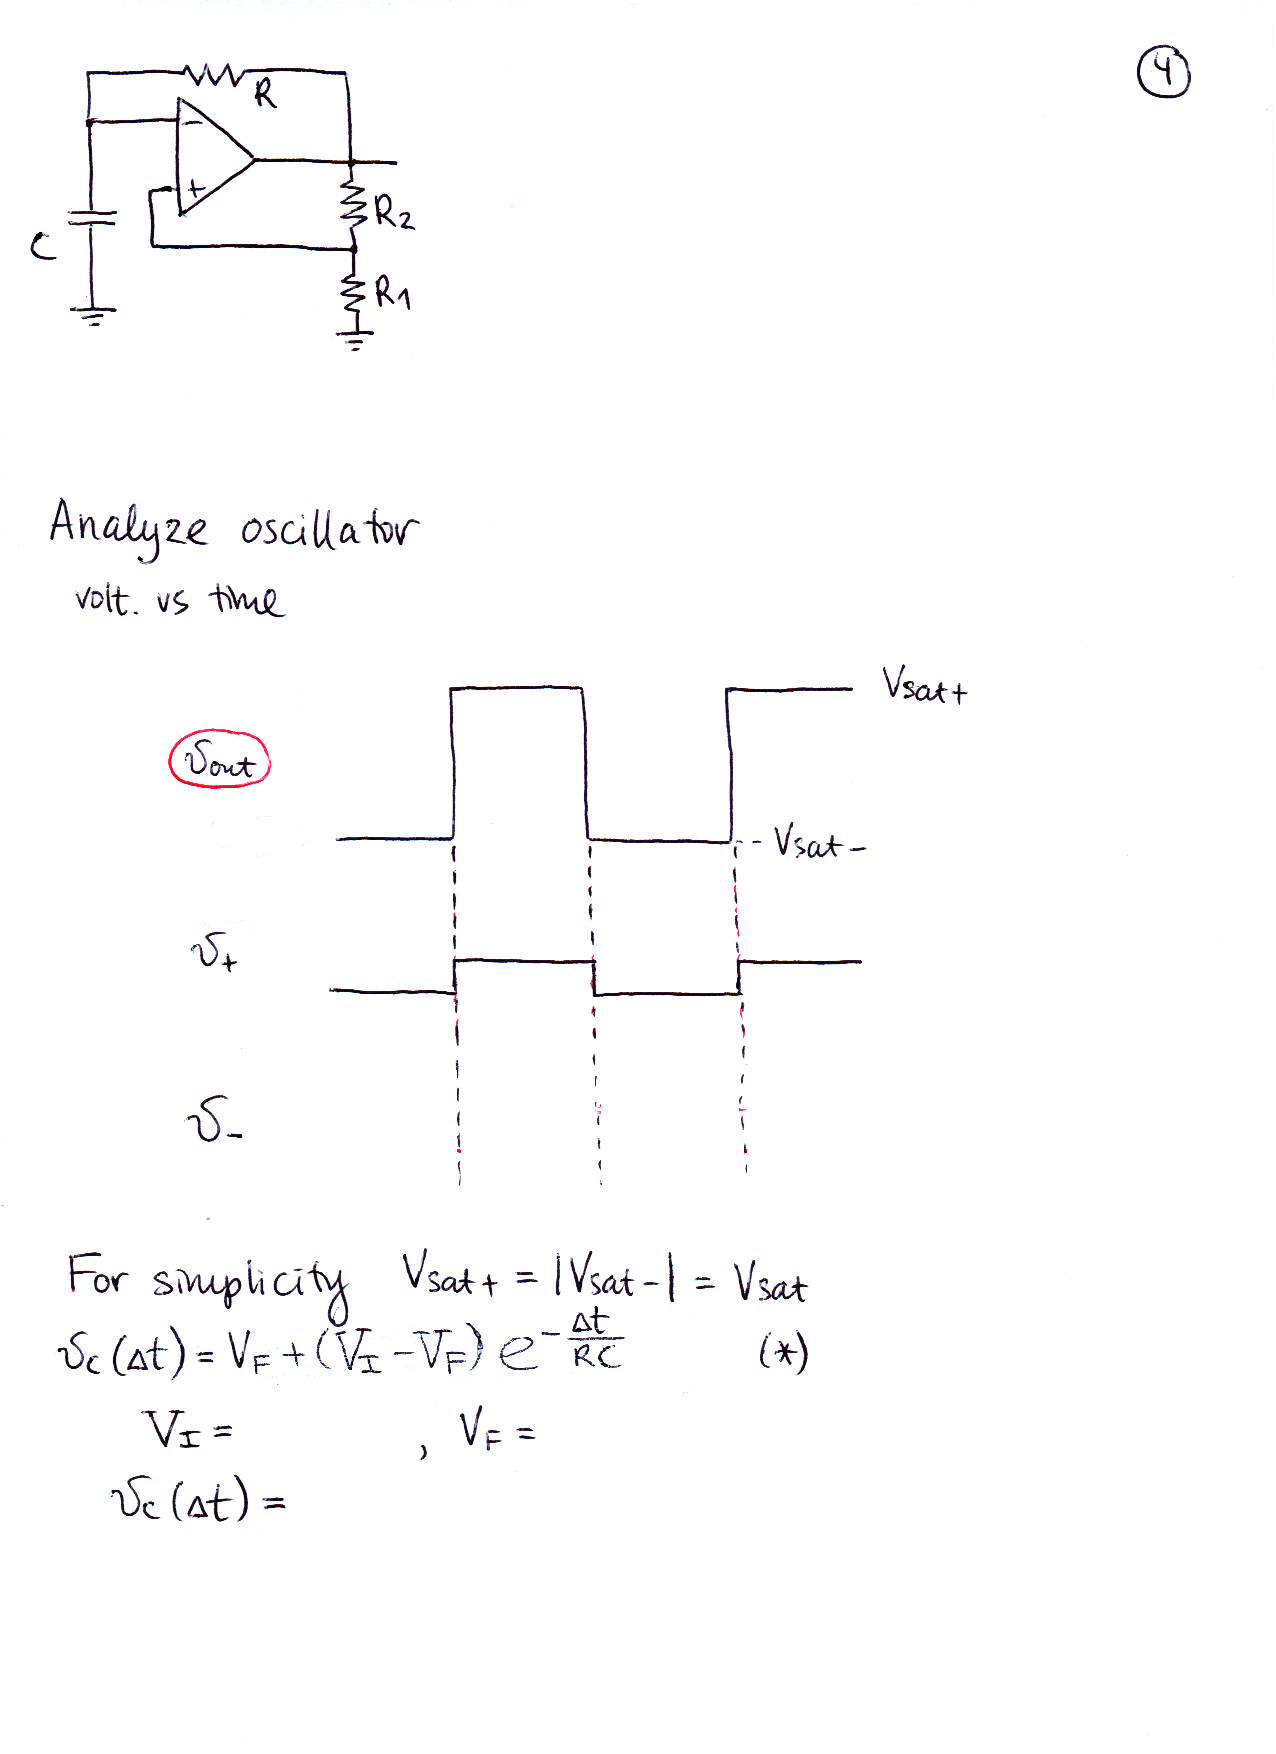 4
R
−
+
C
R2
R1
Analyze oscillator
volt. vs time
Vsat+
vout
Vsat−
v+
v−
For simplicity Vsat+ = |Vsat−| = Vsat
vc(Δt) = VF + (VI − VF) e^−Δt/RC (*)
VI = , VF =
vc(Δt) =